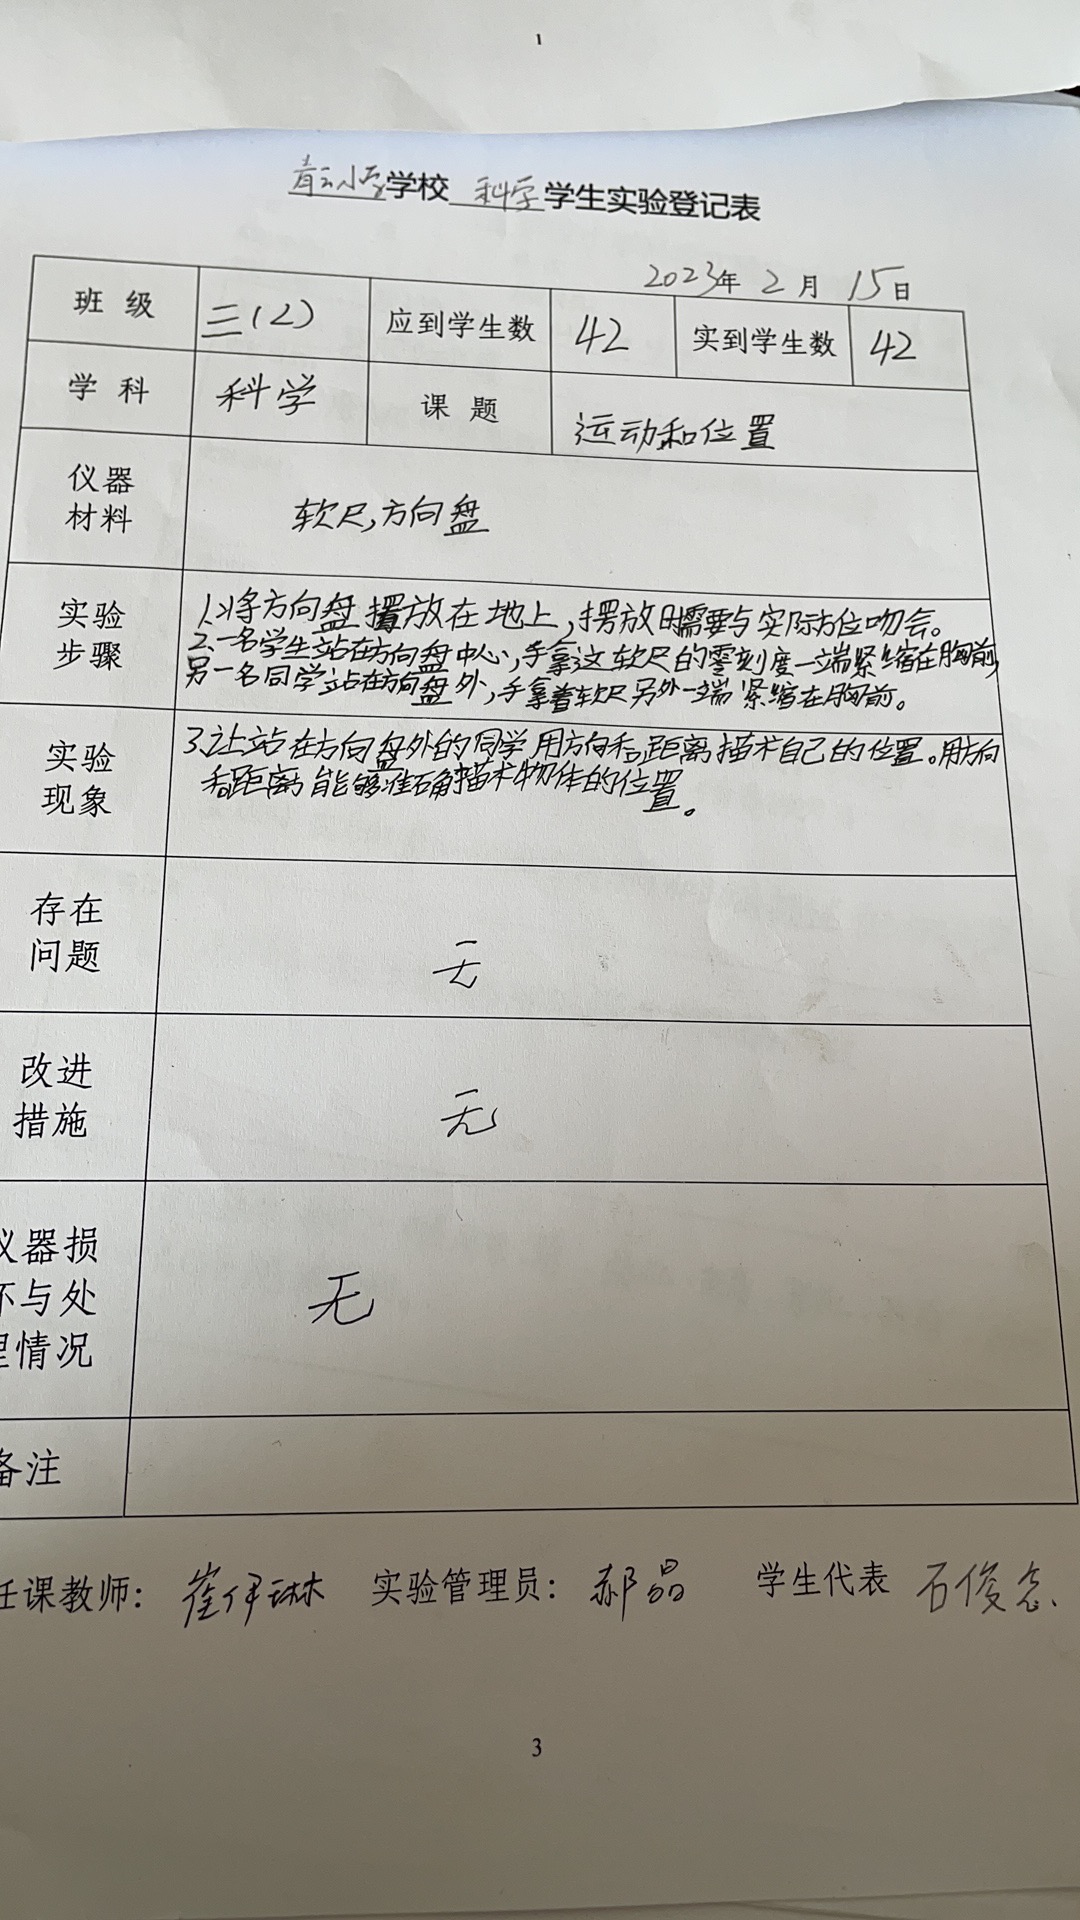 1
青云小学学校 科学 学生实验登记表
2023年 2 月 15日
班 级 三(2) 应到学生数 42 实到学生数 42
学 科 科学 课 题 运动和位置
仪器
材料
软尺,方向盘
实验
步骤
1.将方向盘摆放在地上,摆放时需要与实际方位吻合。
2.一名学生站在方向盘中心,手拿这软尺的零刻度一端紧缩在胸前,
另一名同学站在方向盘外,手拿着软尺另外一端紧缩在胸前。
实验
现象
3.让站在方向盘外的同学用方向和距离描术自己的位置。用方向
和距离能够准确描术物体的位置。
存在
问题
无
改进
措施
无
仪器损
坏与处
理情况
无
备注
任课教师: 崔伊琳 实验管理员: 郝晶 学生代表 石俊
3